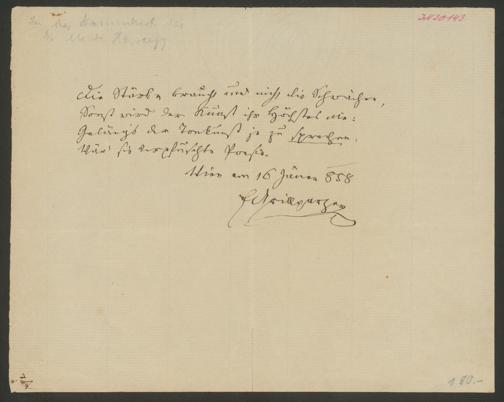 In das Stammbuch des
Die Stärke braucht und nicht die Schwäche,
Sonst wird der Kunst ihr Höchstes nie:
Geläng's der Tonkunst je zu sprechen,
Wär' sie verpfuschte Poesie.
Wien am 16 Jänner 858
FGrillparzer
1 80.-